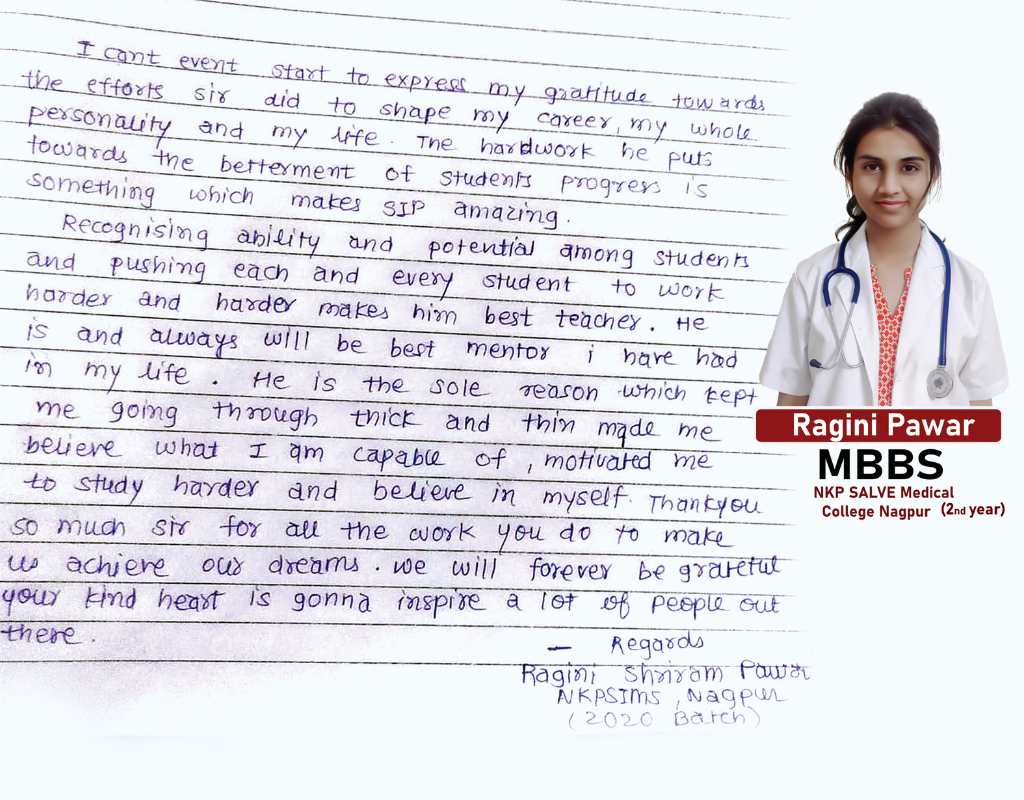 I cant event start to express my gratitude towards
the efforts sir did to shape my career, my whole
personality and my life. The hardwork he puts
towards the betterment of students progress is
something which makes SIP amazing.
Recognising ability and potential among students
and pushing each and every student to work
harder and harder makes him best teacher. He
is and always will be best mentor i have had
in my life. He is the sole reason which kept
me going through thick and thin made me
believe what I am capable of, motivated me
to study harder and believe in myself. Thankyou
so much sir for all the work you do to make
us achieve our dreams. We will forever be grateful
your kind heart is gonna inspire a lot of people out
there.
— Regards
Ragini Shriram Pawar
NKPSIMS, Nagpur
(2020 Batch)
Ragini Pawar
MBBS
NKP SALVE Medical
College Nagpur (2nd year)